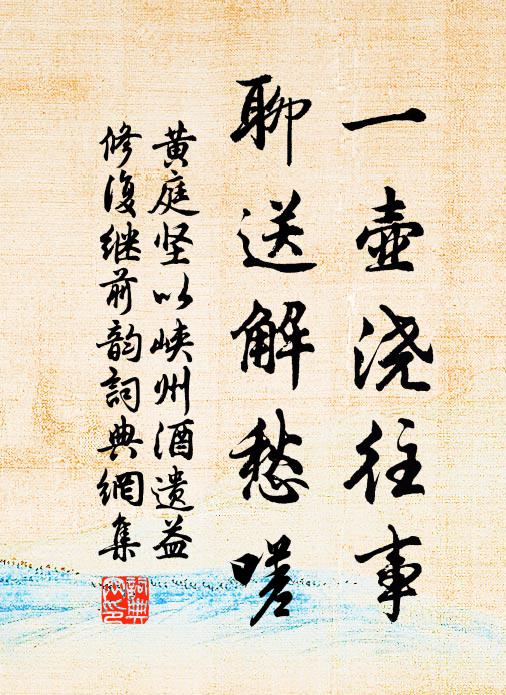 一壶浇往事
聊送解愁嗟
黄庭坚以峡州酒遗益
修复继前韵詞典網集